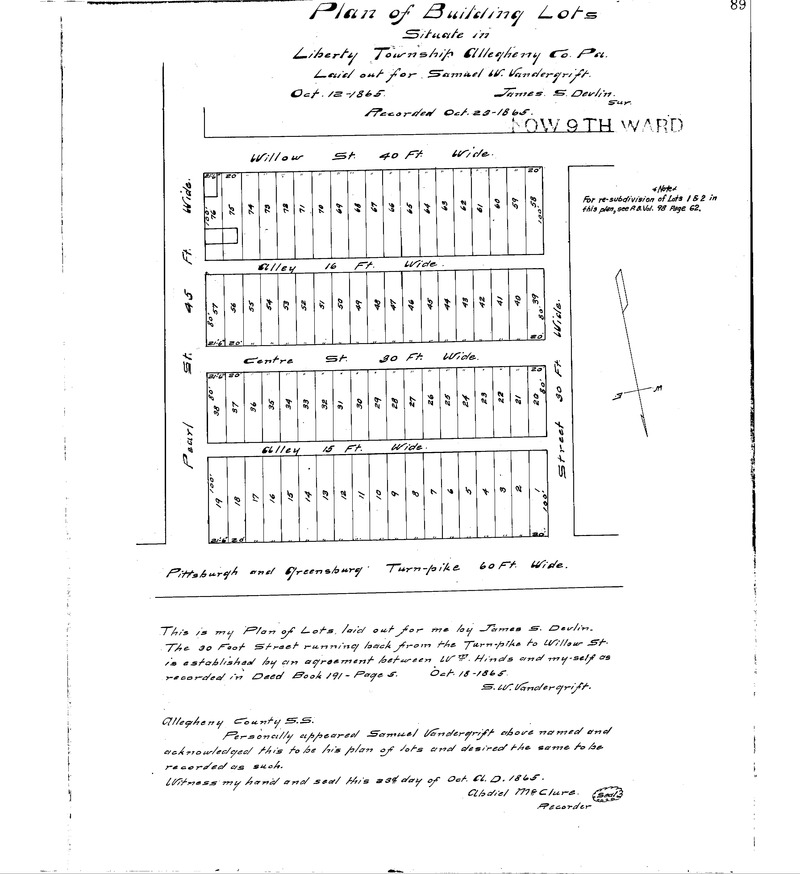 89
Plan of Building Lots
Situate in
Liberty Township Allegheny Co. Pa.
Laid out for Samuel W. Vandergrift.
Oct. 12-1865. James S. Devlin.
Sur.
Recorded Oct. 23-1865.
NOW 9TH WARD
Willow St. 40 Ft. Wide.
Note
For re-subdivision of Lots 1 & 2 in
this plan, see P.B. Vol. 98 Page 62.
21'6" 20 20
100' 76 75 74 73 72 71 70 69 68 67 66 65 64 63 62 61 60 59 58 100'
Alley 16 Ft. Wide.
80' 57 56 55 54 53 52 51 50 49 48 47 46 45 44 43 42 41 40 39 80'
21'6" 20 20
Centre St. 30 Ft. Wide.
21'6" 20 20
80' 38 37 36 35 34 33 32 31 30 29 28 27 26 25 24 23 22 21 20 80'
Alley 15 Ft. Wide.
100' 19 18 17 16 15 14 13 12 11 10 9 8 7 6 5 4 3 2 1 100'
21'6" 20 20
Pearl St. 45 Ft. Wide.
Street 30 Ft. Wide.
S N
Pittsburgh and Greensburg Turn-pike 60 Ft. Wide.
This is my Plan of Lots, laid out for me by James S. Devlin.
The 30 Foot Street running back from the Turn-pike to Willow St.
is established by an agreement between Wm. Hinds and my-self as
recorded in Deed Book 191-Page 5. Oct. 18-1865.
S. W. Vandergrift.
Allegheny County S.S.
Personally appeared Samuel Vandergrift above named and
acknowledged this to be his plan of lots and desired the same to be
recorded as such.
Witness my hand and seal this 23d day of Oct. A. D. 1865.
Abdiel McClure. Seal
Recorder